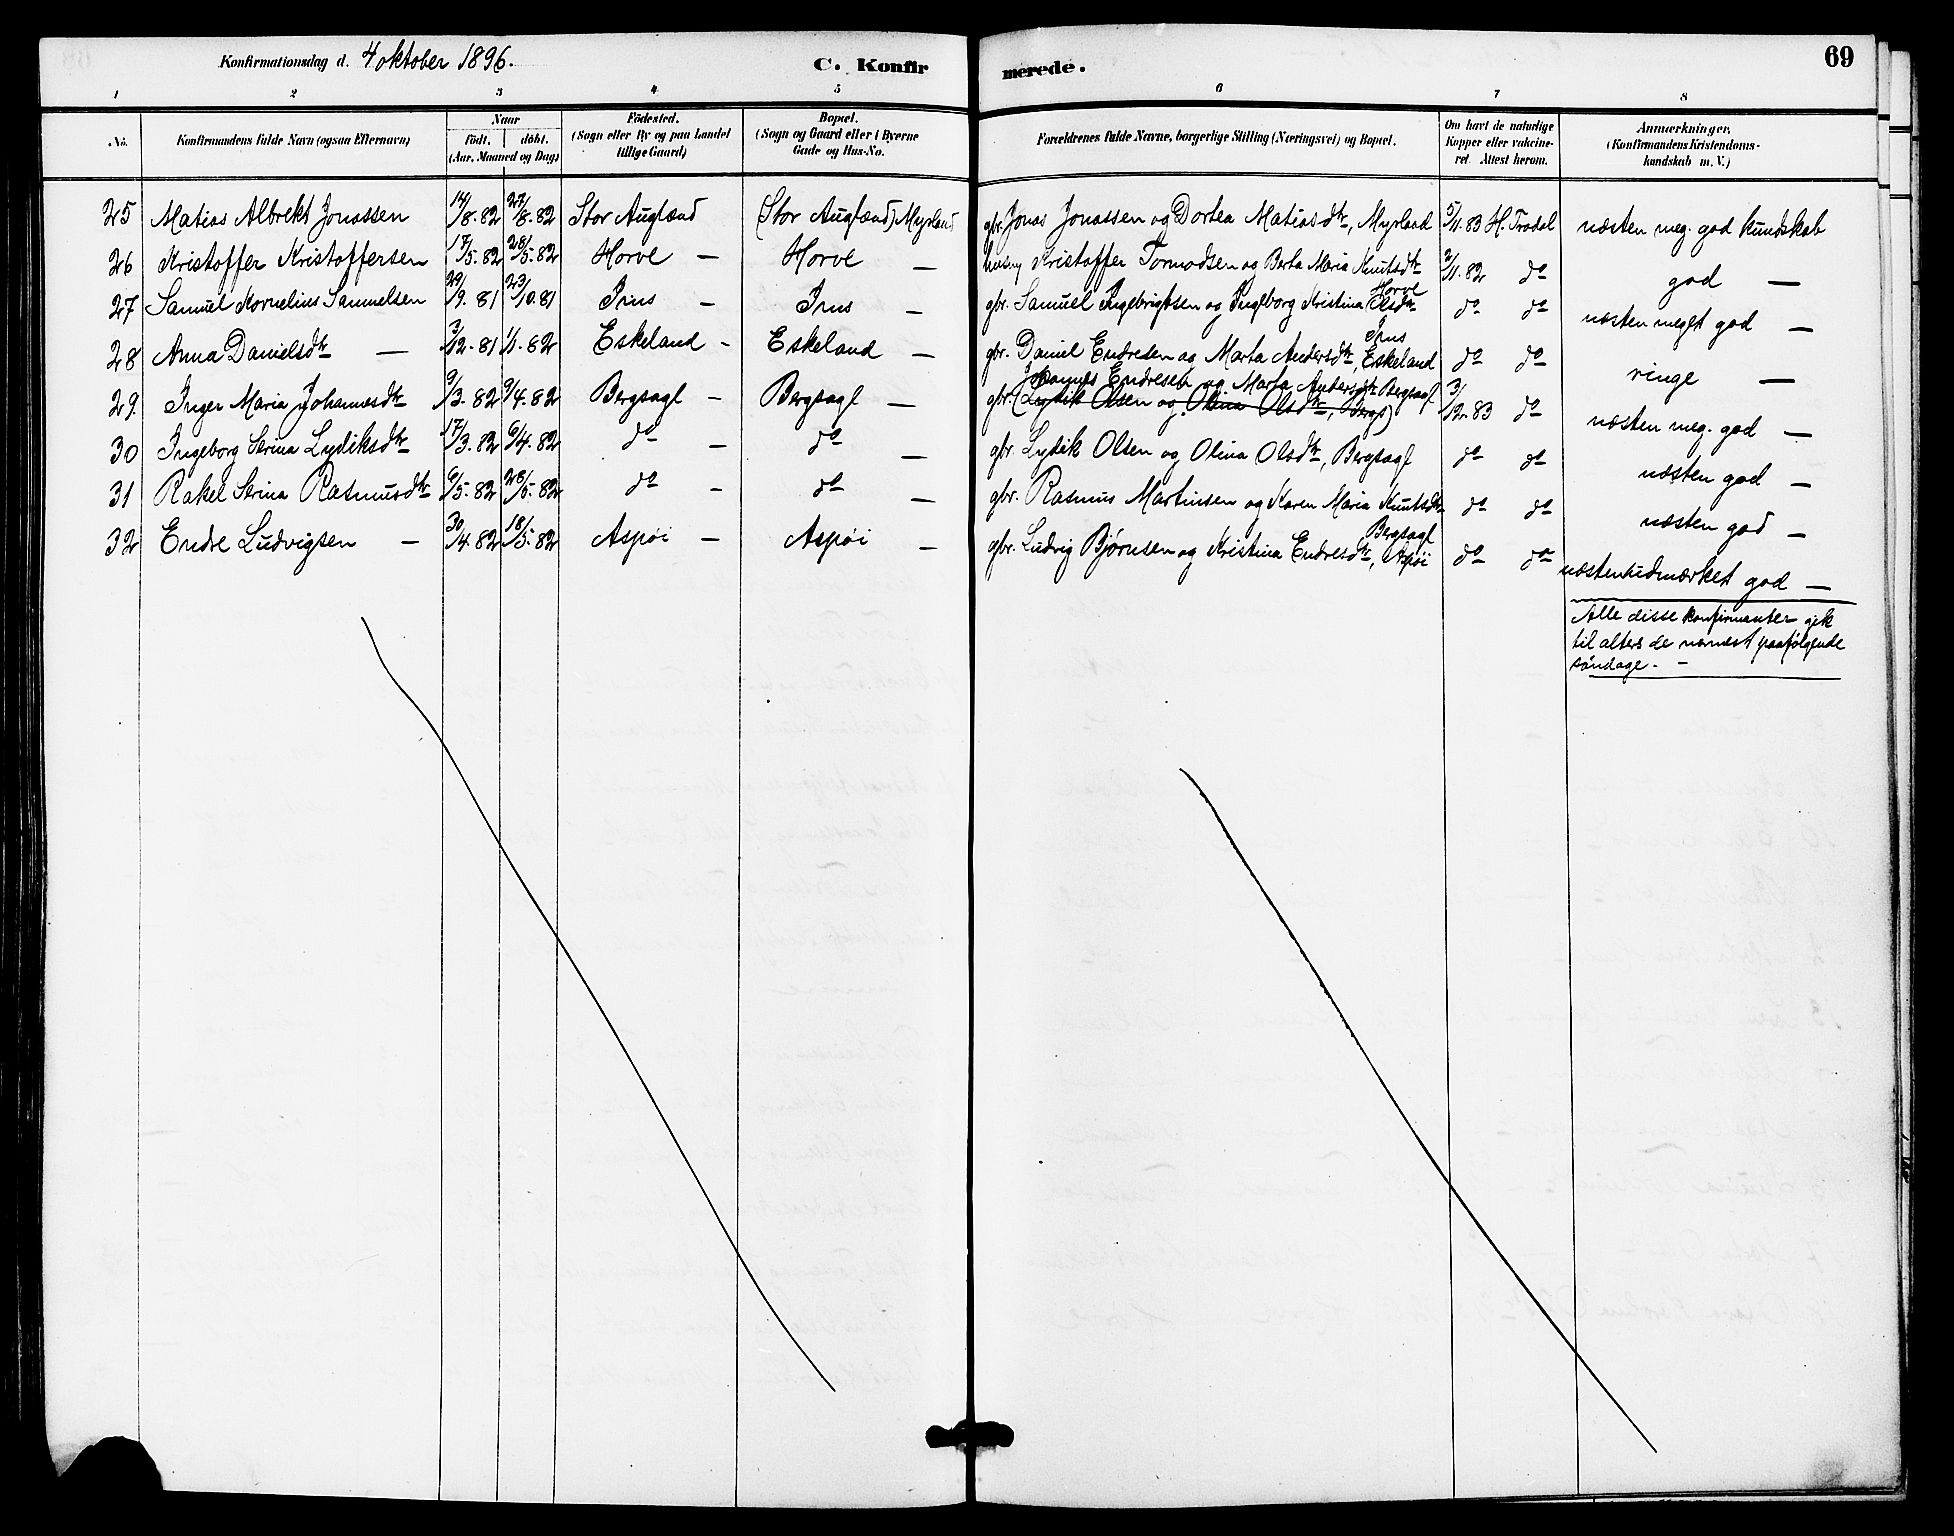 Konfirmationsdag d. 4 oktober 1896.
C. Konfirmerede.
69
1 2 3 4 5 6 7 8
No.
Konfirmandens fulde Navn (ogsaa Efternavn)
Naar
födt. döbt.
(Aar, Maaned og Dag)
Födested.
(Sogn eller By og paa Landet
tillige Gaard)
Bopæl.
(Sogn og Gaard eller i Byerne
Gade og Hus-No.
Forældrenes fulde Navne, borgerlige Stilling (Næringsvei) og Bopæl.
Om havt de naturlige
Kopper eller vakcine-
ret. Attest herom.
Anmærkninger.
(Konfirmandens Kristendoms-
kundskab m. V.)
25 Matias Albrekt Jonassen 14/8.82 27/8.82 Stor Augland (Stor Augland) Myrland gbr. Jonas Jonassen og Dortea Matiasdtr, Myrland 5/11.83 H. Tradal næsten meg. god kundskab
26 Kristoffer Kristoffersen 17/5.82 28/5.82 Horve — Horve — husm Kristoffer Tormodsen og Berta Maria Knutsdtr Horve 2/11.82 do god —
27 Samuel Kornelius Samuelsen 29/9.81 23/10.81 Irus — Irus — gbr. Samuel Ingebrigtsen og Ingeborg Kristina Olsdtr Irus do do næsten meget god —
28 Anna Danielsdtr — 3/12.81 1/1.82 Eskeland — Eskeland — gbr. Daniel Endresen og Marta Andersdtr, Eskeland do do ringe —
29 Inger Maria Johannesdtr 9/3.82 9/4.82 Bergsagl — Bergsagl — gbr. Johannes Endresen og Marta Andersdtr Bergsagl (Lydik Olsen og Olina Olsdtr, Bergs) 3/12.83 do næsten meg. god —
30 Ingeborg Serina Lydiksdtr 17/3.82 6/4.82 do — do — gbr. Lydik Olsen og Olina Olsdtr, Bergsagl do do næsten god —
31 Rakel Serina Rasmusdtr 6/5.82 28/5.82 do — do — gbr. Rasmus Martinsen og Karen Maria Knutsdtr Bergsagl do do næsten god —
32 Endre Ludvigsen — 30/4.82 18/5.82 Aspöi — Aspöi — gbr. Ludvig Bjørnsen og Kristina Endresdtr, Aspöi do do næsten udmærket god —
Alle disse konfirmanter gik
til alters de nærmest paafølgende
söndage. —